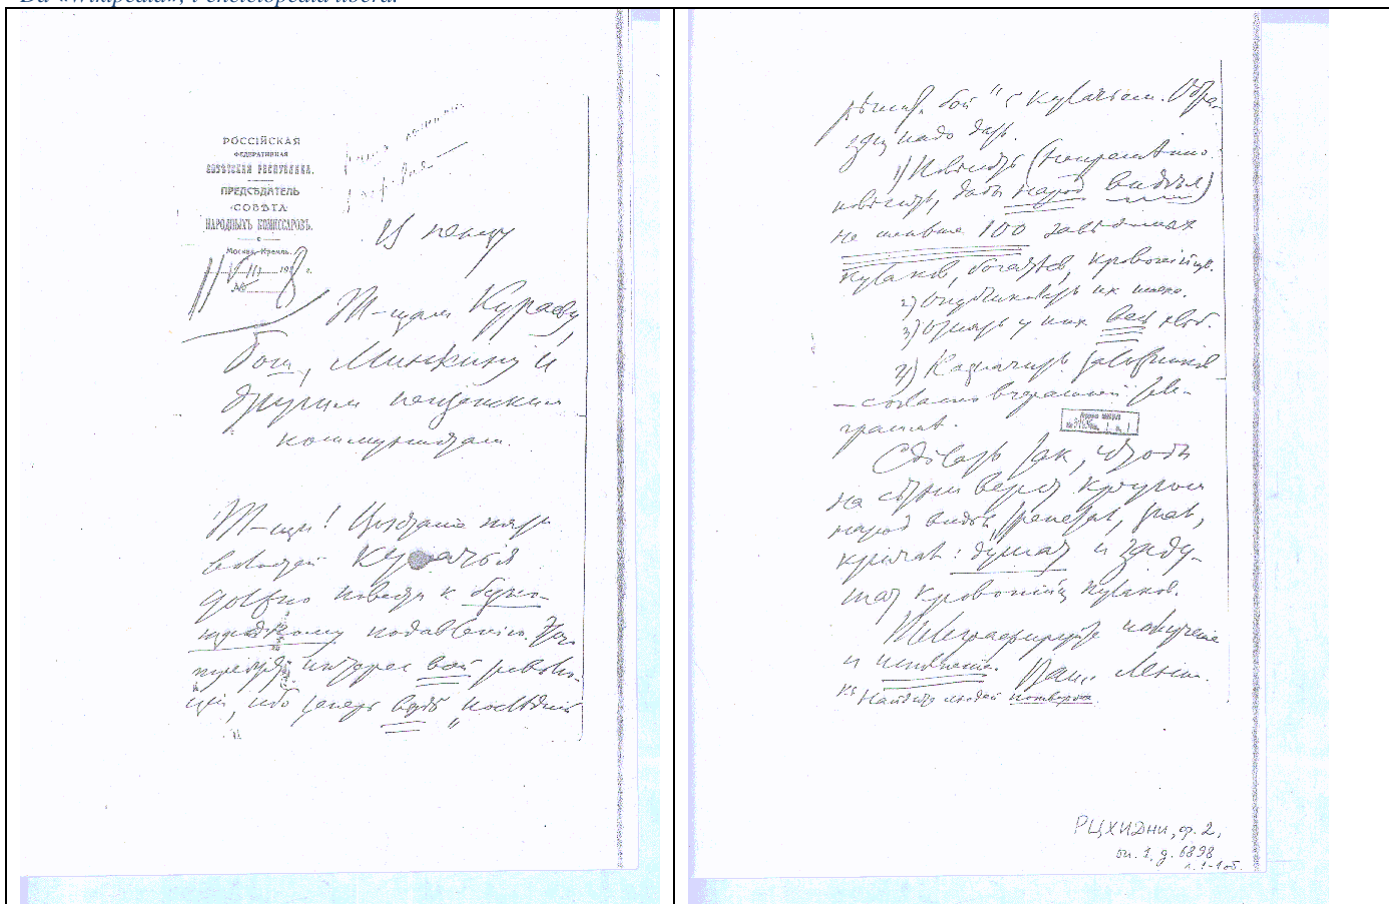 Da «Wikipedia», l'enciclopedia libera.
РОССІЙСКАЯ
ФЕДЕРАТИВНАЯ
СОВѢТСКАЯ РЕСПУБЛИКА.
ПРЕДСѢДАТЕЛЬ
СОВѢТА
НАРОДНЫХЪ КОМИССАРОВЪ.
Москва, Кремль.
11 VIII 1918 г.
№
В Пензу
Т-щам Кураеву,
Бош, Минкину и
другим пензенским
коммунистам.
Т-щи! Восстание пяти
волостей кулачья
должно повести к беспо-
щадному подавлению. Этого
требует интерес всей револю-
ции, ибо теперь везде „последний
решит. бой" с кулачьем. Обра-
зец надо дать.
1) Повесить (непременно
повесить, дабы народ видел)
не меньше 100 заведомых
кулаков, богатеев, кровопийц.
2) Опубликовать их имена.
3) Отнять у них весь хлеб.
4) Назначить заложников
— согласно вчерашней теле-
грамме.
Сделать так, чтобы
на сотни верст кругом
народ видел, трепетал, знал,
кричал: душат и заду-
шат кровопийц кулаков.
Телеграфируйте получение
и исполнение. Ваш Ленин.
Найдите людей потверже
РЦХИДНИ, ф. 2,
оп. 1, д. 6898
л. 1-1 об.